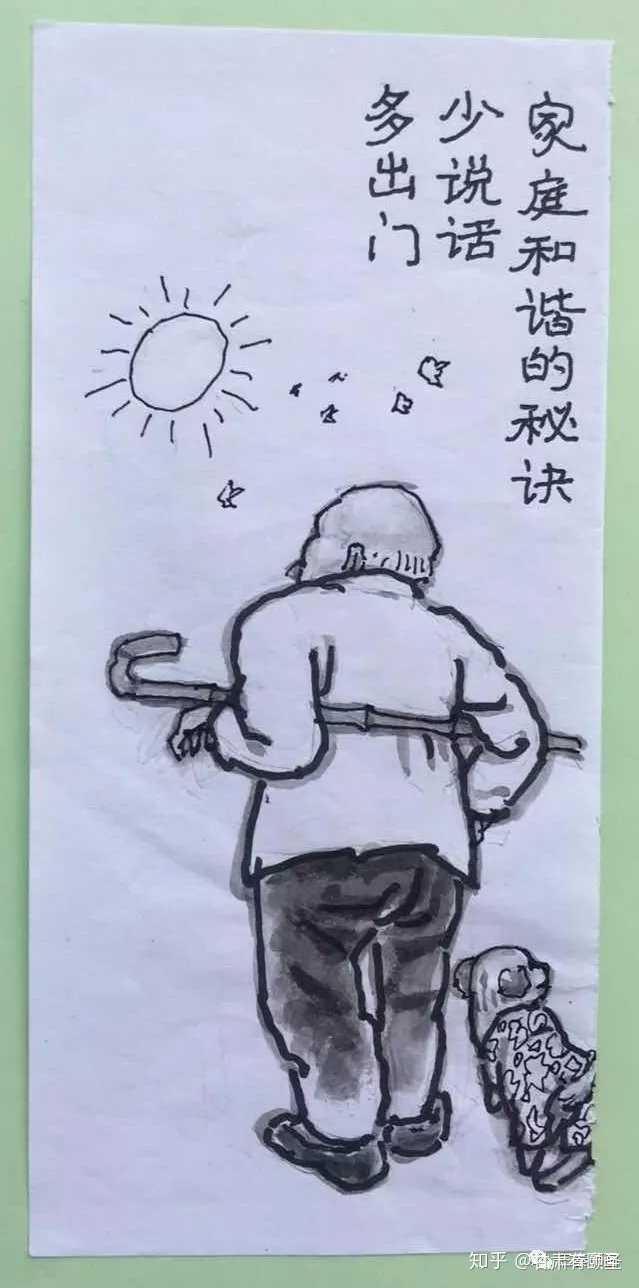 家庭和谐的秘诀
少说话
多出门
知乎